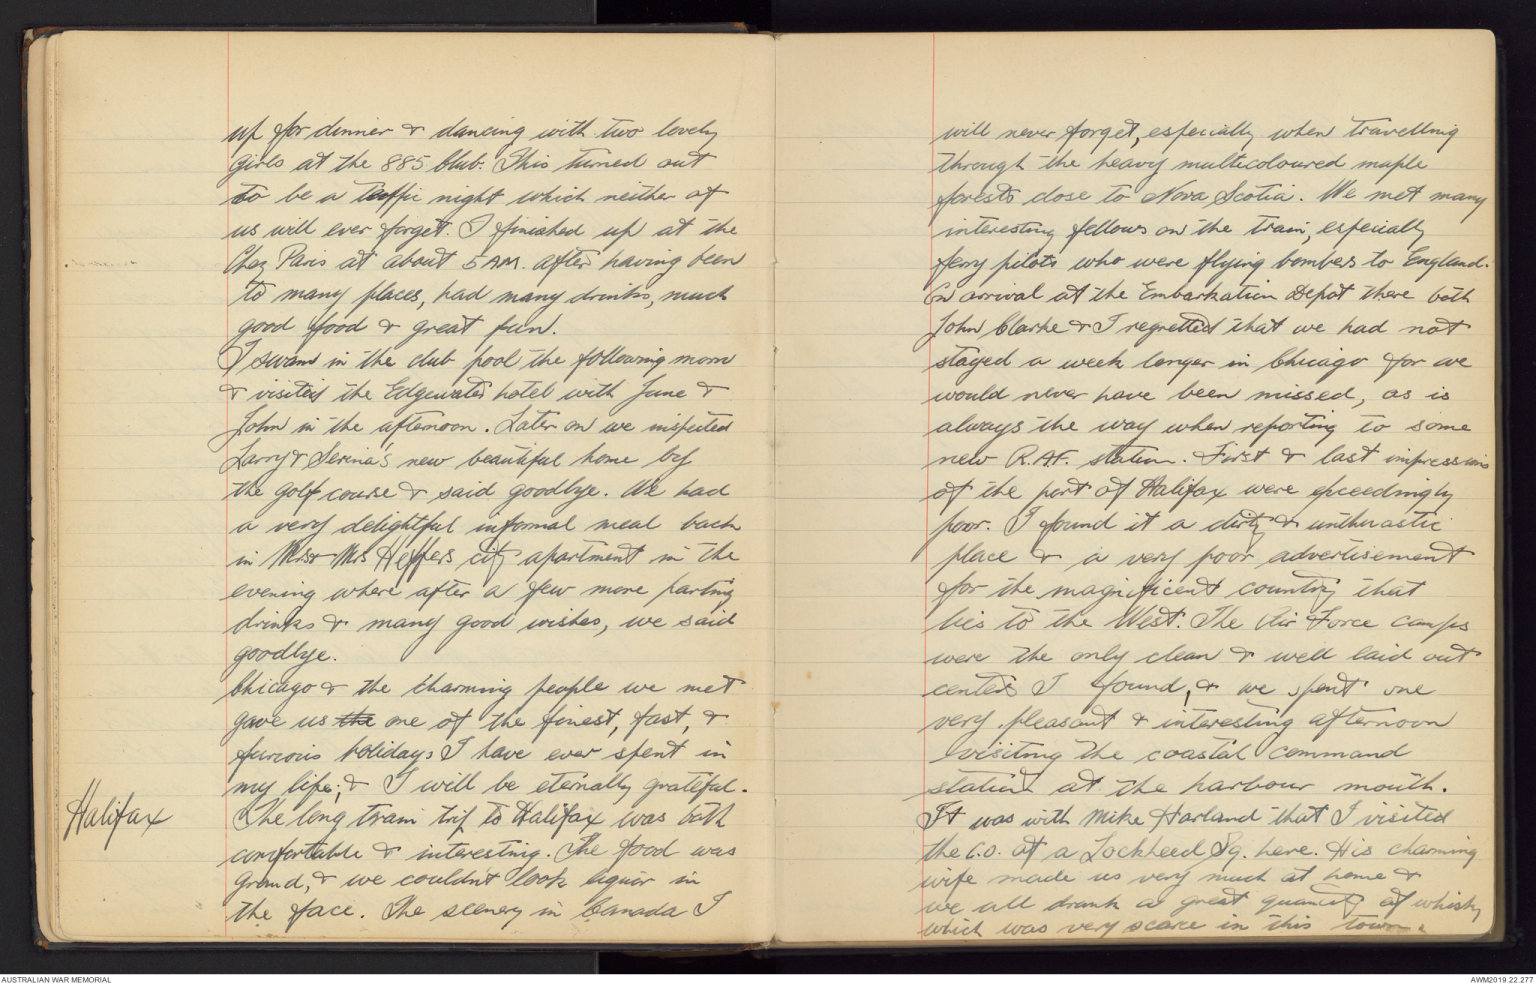 up for dinner & dancing with two lovely
girls at the 885 Club. This turned out
to be a terrific night which neither of
us will ever forget. I finished up at the
Chez Paris at about 5 AM. after having been
to many places, had many drinks, much
good food & great fun.
I swam in the club pool the following morn
& visited the Edgewater hotel with June &
John in the afternoon. Later on we inspected
Larry & Serina's new beautiful home by
the golf course & said goodbye. We had
a very delightful informal meal back
in Mr & Mrs Heffers city apartment in the
evening where after a few more parting
drinks & many good wishes, we said
goodbye.
Chicago & the charming people we met
gave us the one of the finest, fast, &
furious holidays I have ever spent in
my life; & I will be eternally grateful.
Halifax
The long train trip to Halifax was both
comfortable & interesting. The food was
grand, & we couldn't look liquor in
the face. The scenery in Canada I
will never forget, especially when travelling
through the heavy multicoloured maple
forests close to Nova Scotia. We met many
interesting fellows on the train, especially
ferry pilots who were flying bombers to England.
On arrival at the Embarkation Depot there both
John Clarke & I regretted that we had not
stayed a week longer in Chicago for we
would never have been missed, as is
always the way when reporting to some
new R.A.F. station. First & last impressions
of the port of Halifax were exceedingly
poor. I found it a dirty &
place & a very poor advertisement
for the magnificent country that
lies to the West. The Air Force camps
were the only clean & well laid out
centers I found, & we spent one
very pleasant & interesting afternoon
visiting the coastal command
station at the harbour mouth.
It was with Mike Harland that I visited
the C.O. of a Lockheed Sq. here. His charming
wife made us very much at home &
we all drank a great quantity of whisky
which was very scarce in this town.
AUSTRALIAN WAR MEMORIAL
AWM2019.22.277